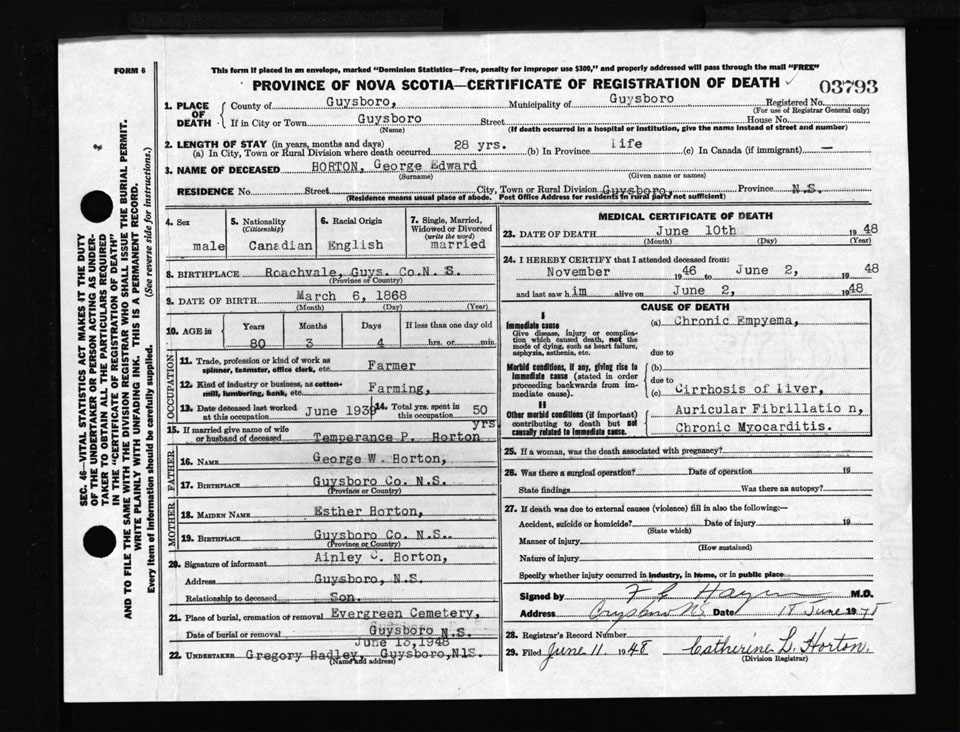 FORM 6
This form if placed in an envelope, marked "Dominion Statistics—Free, penalty for improper use $300," and properly addressed will pass through the mail "FREE"
PROVINCE OF NOVA SCOTIA—CERTIFICATE OF REGISTRATION OF DEATH
03793
1. PLACE OF DEATH
County of Guysboro, Municipality of Guysboro Registered No.
(For use of Registrar General only)
If in City or Town Guysboro Street House No.
(Name) (If death occurred in a hospital or institution, give the name instead of street and number)
2. LENGTH OF STAY (in years, months and days)
(a) In City, Town or Rural Division where death occurred 28 yrs. (b) In Province life (c) In Canada (if immigrant) —
3. NAME OF DECEASED HORTON, George Edward
(Surname) (Given name or names)
RESIDENCE No. Street City, Town or Rural Division Guysboro, Province N.S.
(Residence means usual place of abode. Post Office Address for residents in rural parts not sufficient)
4. Sex
male
5. Nationality
(Citizenship)
Canadian
6. Racial Origin
English
7. Single, Married, Widowed or Divorced
(write the word)
married
8. BIRTHPLACE Roachvale, Guys. Co.N. S.
(Province or Country)
9. DATE OF BIRTH March 6, 1868
(Month) (Day) (Year)
10. AGE in Years Months Days If less than one day old
80 3 4 hrs. or min.
OCCUPATION
11. Trade, profession or kind of work as spinner, teamster, office clerk, etc. Farmer
12. Kind of industry or business, as cotton-mill, lumbering, bank, etc. Farming,
13. Date deceased last worked at this occupation June 1939
14. Total yrs. spent in this occupation 50 yrs.
15. If married give name of wife or husband of deceased Temperance P. Horton
FATHER
16. NAME George W. Horton,
17. BIRTHPLACE Guysboro Co. N.S.
(Province or Country)
MOTHER
18. MAIDEN NAME Esther Horton,
19. BIRTHPLACE Guysboro Co. N.S..
(Province or Country)
20. Signature of informant Ainley C. Horton,
Address Guysboro, N.S.
Relationship to deceased Son.
21. Place of burial, cremation or removal Evergreen Cemetery,
Guysboro N.S.
Date of burial or removal June 13,1948
22. UNDERTAKER Gregory Hadley, Guysboro,N1S.
(Name and address)
MEDICAL CERTIFICATE OF DEATH
23. DATE OF DEATH June 10th 1948
(Month) (Day) (Year)
24. I HEREBY CERTIFY that I attended deceased from:
November 1946 to June 2, 1948
and last saw him alive on June 2, 1948
CAUSE OF DEATH
I
Immediate cause
Give disease, injury or complication which caused death, not the mode of dying, such as heart failure, asphyxia, asthenia, etc.
(a) Chronic Empyema,
due to
Morbid conditions, if any, giving rise to immediate cause (stated in order proceeding backwards from immediate cause).
(b)
due to
(c) Cirrhosis of liver,
II
Other morbid conditions (if important) contributing to death but not causally related to immediate cause.
Auricular Fibrillatio n,
Chronic Myocarditis.
25. If a woman, was the death associated with pregnancy?
26. Was there a surgical operation? Date of operation 19
State findings Was there an autopsy?
27. If death was due to external causes (violence) fill in also the following:—
Accident, suicide or homicide? Date of injury 19
(State which)
Manner of injury
(How sustained)
Nature of injury
Specify whether injury occurred in industry, in home, or in public place
Signed by M.D.
Address Guysboro NS Date June 19
28. Registrar's Record Number
29. Filed June 11. 1948 Catherine L. Horton.
(Division Registrar)
SEC. 46—VITAL STATISTICS ACT MAKES IT THE DUTY
OF THE UNDERTAKER OR PERSON ACTING AS UNDER-
TAKER TO OBTAIN ALL THE PARTICULARS REQUIRED
IN THE "CERTIFICATE OF REGISTRATION OF DEATH"
AND TO FILE THE SAME WITH THE DIVISION REGISTRAR WHO SHALL ISSUE THE BURIAL PERMIT.
WRITE PLAINLY WITH UNFADING INK. THIS IS A PERMANENT RECORD.
Every item of information should be carefully supplied. (See reverse side for instructions.)